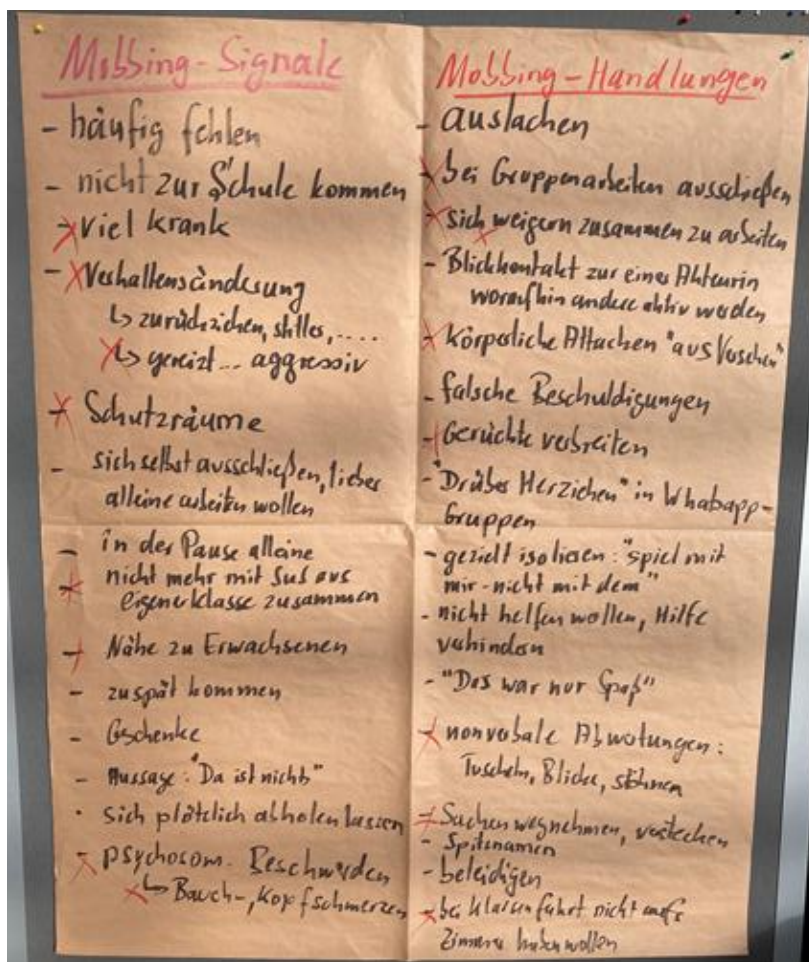 Mobbing-Signale
- häufig fehlen
- nicht zur Schule kommen
- viel krank
- Verhaltensänderung
↳ zurückziehen, stilles, ....
↳ gereizt... aggressiv
- Schutzräume
- sich selbst ausschließen, lieber
alleine arbeiten wollen
- in der Pause alleine
- nicht mehr mit SuS aus
eigener Klasse zusammen
- Nähe zu Erwachsenen
- zu spät kommen
- Geschenke
- Aussage: "Da ist nichts"
· sich plötzlich abholen lassen
- psychosom. Beschwerden
↳ Bauch-, Kopfschmerzen
Mobbing-Handlungen
- auslachen
- bei Gruppenarbeiten ausschließen
- sich weigern zusammen zu arbeiten
- Blickkontakt zur einer Akteurin
woraufhin andere aktiv werden
- körperliche Attacken "aus Versehen"
- falsche Beschuldigungen
- Gerüchte verbreiten
- "Drüber Herziehen" in Whatsapp-
Gruppen
- gezielt isolieren: "spiel mit
mir - nicht mit dem"
- nicht helfen wollen, Hilfe
verhindern
- "Das war nur Spaß"
- nonverbale Abwertungen:
Tuscheln, Blicke, stöhnen
- Sachen wegnehmen, verstecken
- Spitznamen
- beleidigen
- bei Klassenfahrt nicht aufs
Zimmer haben wollen